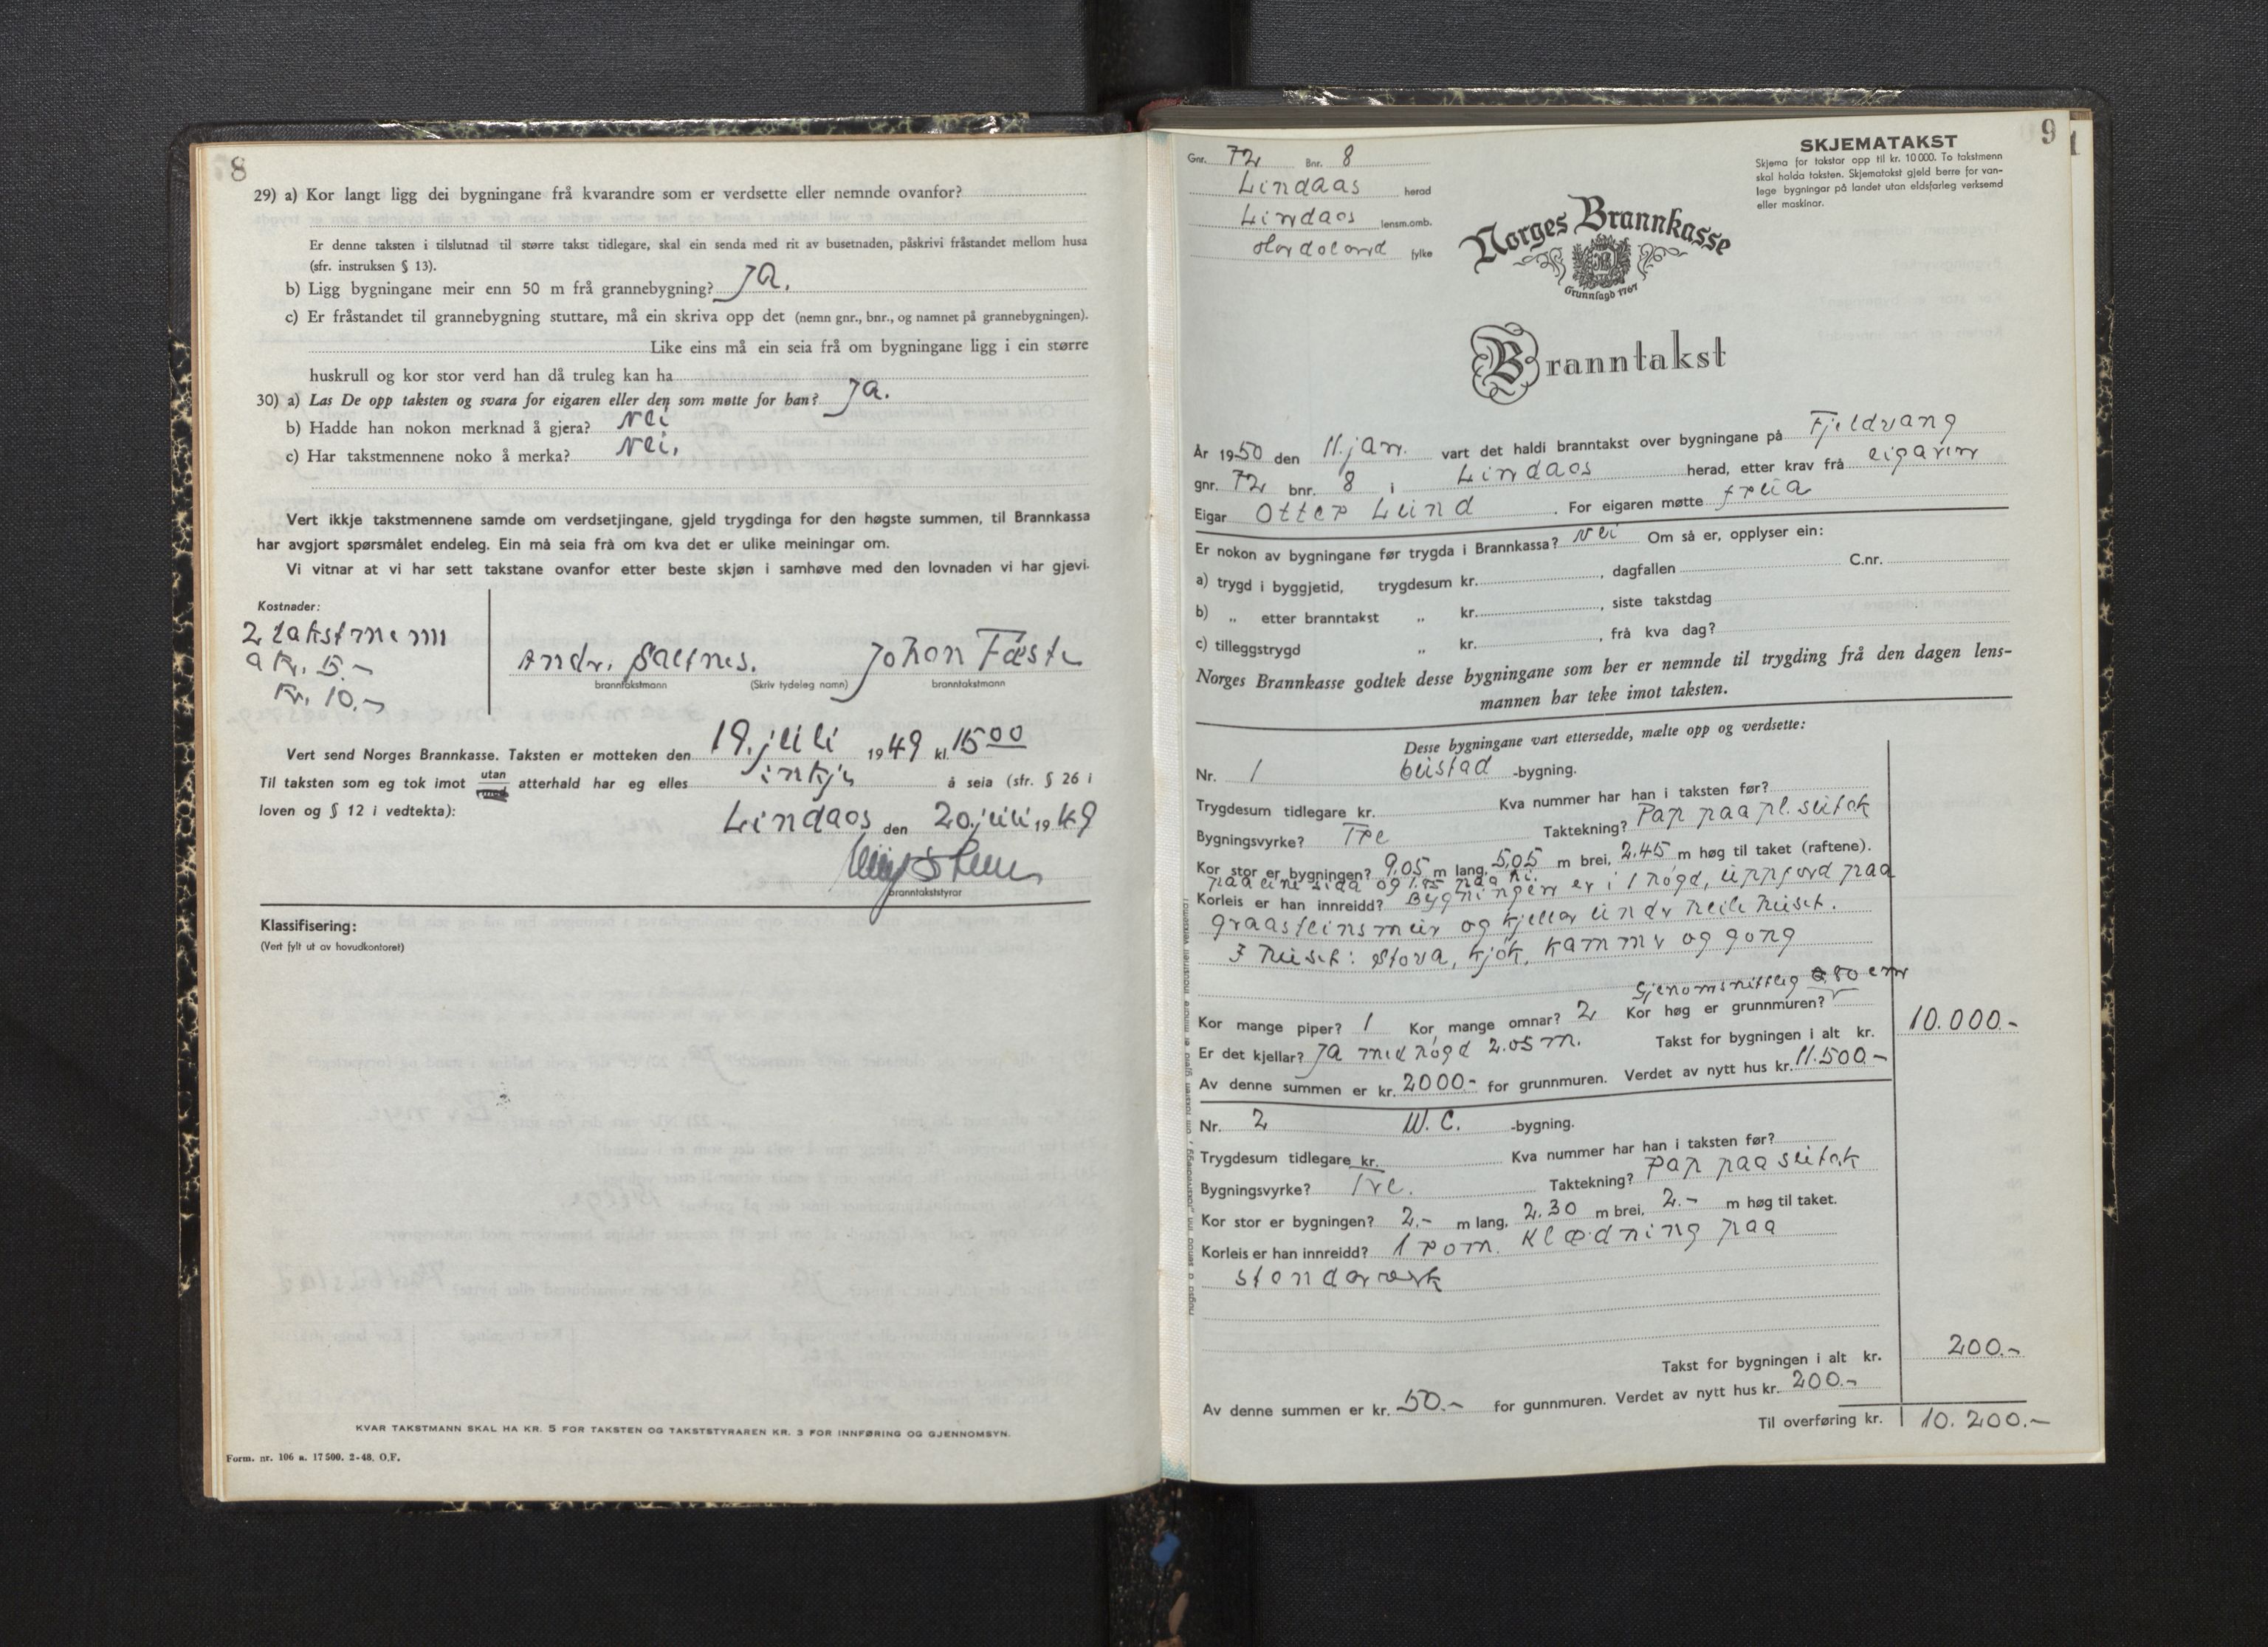 8
29) a) Kor langt ligg dei bygningane frå kvarandre som er verdsette eller nemnde ovanfor?
Er denne taksten i tilslutnad til større takst tidlegare, skal ein senda med rit av busetnaden, påskrivi fråstandet mellom husa
(sfr. instruksen § 13).
b) Ligg bygningane meir enn 50 m frå grannebygning? Ja.
c) Er fråstandet til grannebygning stuttare, må ein skriva opp det (nemn gnr., bnr., og namnet på grannebygningen).
Like eins må ein seia frå om bygningane ligg i ein større
huskrull og kor stor verd han då truleg kan ha
30) a) Las De opp taksten og svara for eigaren eller den som møtte for han? Ja.
b) Hadde han nokon merknad å gjera? Nei
c) Har takstmennene noko å merka? Nei.
Vert ikkje takstmennene samde om verdsetjingane, gjeld trygdinga for den høgste summen, til Brannkassa
har avgjort spørsmålet endeleg. Ein må seia frå om kva det er ulike meiningar om.
Vi vitnar at vi har sett takstane ovanfor etter beste skjøn i samhøve med den lovnaden vi har gjevi.
Kostnader:
2 takstmenn
a kr. 5.-
Kr. 10.-
Andr. Saltnes. Johan Fæste
branntakstmann (Skriv tydeleg namn) branntakstmann
Vert send Norges Brannkasse. Taksten er motteken den 19. juli 1949 kl. 15 00
Til taksten som eg tok imot utan atterhald har eg elles inkje å seia (sfr. § 26 i
loven og § 12 i vedtekta):
Lindaas den 20. juli 1949
branntakststyrar
Klassifisering:
(Vert fylt ut av hovudkontoret)
KVAR TAKSTMANN SKAL HA KR. 5 FOR TAKSTEN OG TAKSTSTYRAREN KR. 3 FOR INNFØRING OG GJENNOMSYN.
Form. nr. 106 a. 17 500. 2-48. O.F.
9
1
Gnr. 72 Bnr. 8
Lindaas herad
Lindaas lensm.omb.
Hordaland fylke
SKJEMATAKST
Skjema for takstar opp til kr. 10 000. To takstmenn
skal halda taksten. Skjematakst gjeld berre for van-
lege bygningar på landet utan eldsfarleg verksemd
eller maskinar.
Norges Brannkasse
Grunnlagd 1767
Branntakst
År 1950 den 11. jan. vart det haldi branntakst over bygningane på Fjeldvang
gnr. 72 bnr. 8 i Lindaas herad, etter krav frå eigaren
Eigar Otter Lund . For eigaren møtte frua
Er nokon av bygningane før trygda i Brannkassa? Nei Om så er, opplyser ein:
a) trygd i byggjetid, trygdesum kr. , dagfallen C.nr.
b) „ etter branntakst „ kr. , siste takstdag
c) tilleggstrygd „ kr. , frå kva dag?
Norges Brannkasse godtek desse bygningane som her er nemnde til trygding frå den dagen lens-
mannen har teke imot taksten.
Desse bygningane vart ettersedde, mælte opp og verdsette:
Nr. 1 bustad -bygning.
Trygdesum tidlegare kr. Kva nummer har han i taksten før?
Bygningsvyrke? Tre Taktekning? Pap paa pl. sutak
Kor stor er bygningen? 9.05 m lang, 5,05 m brei, 2.45 m høg til taket (raftene).
paa eine sida og paa hi.
Korleis er han innreidd? Bygningen er i 1 høgd, uppførd paa
graasteinsmur og kjellar under heile huset.
I huset: stova, kjøk, kammer og gong
Gjenomsnittleg 80 cm
Kor mange piper? 1 Kor mange omnar? 2 Kor høg er grunnmuren?
Er det kjellar? Ja med høgd 2.05 m. Takst for bygningen i alt kr. 10.000.-
Av denne summen er kr. 2000.- for grunnmuren. Verdet av nytt hus kr. 11.500.-
Nr. 2 W. C. -bygning.
Trygdesum tidlegare kr. Kva nummer har han i taksten før?
Bygningsvyrke? Tre. Taktekning? Pap paa sutak
Kor stor er bygningen? 2.- m lang, 2.30 m brei, 2.- m høg til taket.
Korleis er han innreidd? 1 rom. Klædning paa
stondarverk
Takst for bygningen i alt kr. 200.-
Av denne summen er kr. 50.- for gunnmuren. Verdet av nytt hus kr. 200.-
Til overføring kr. 10.200.-